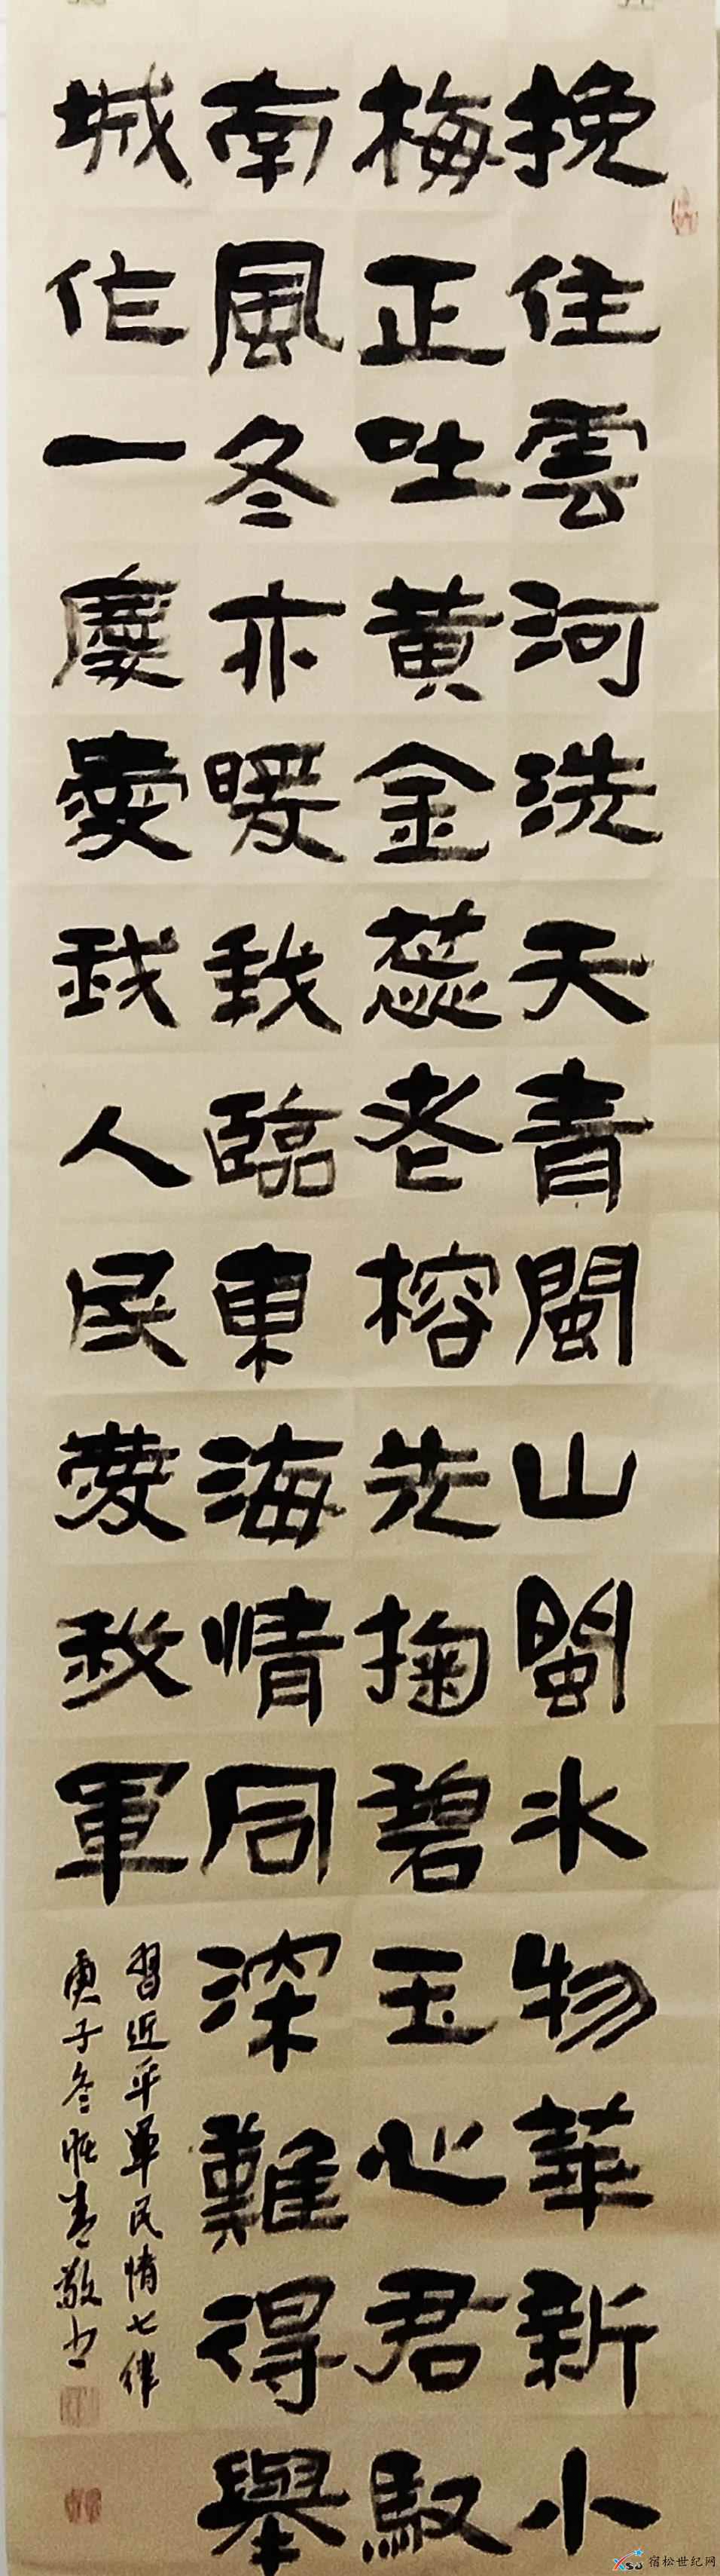 挽住雲河洗天青閩山閩水物華新小
梅正吐黃金蕊老榕先掬碧玉心君馭
南風冬亦暖我臨東海情同深難得舉
城作一慶愛我人民愛我軍
習近平軍民情七律
庚子冬 敬書
宿松世纪网